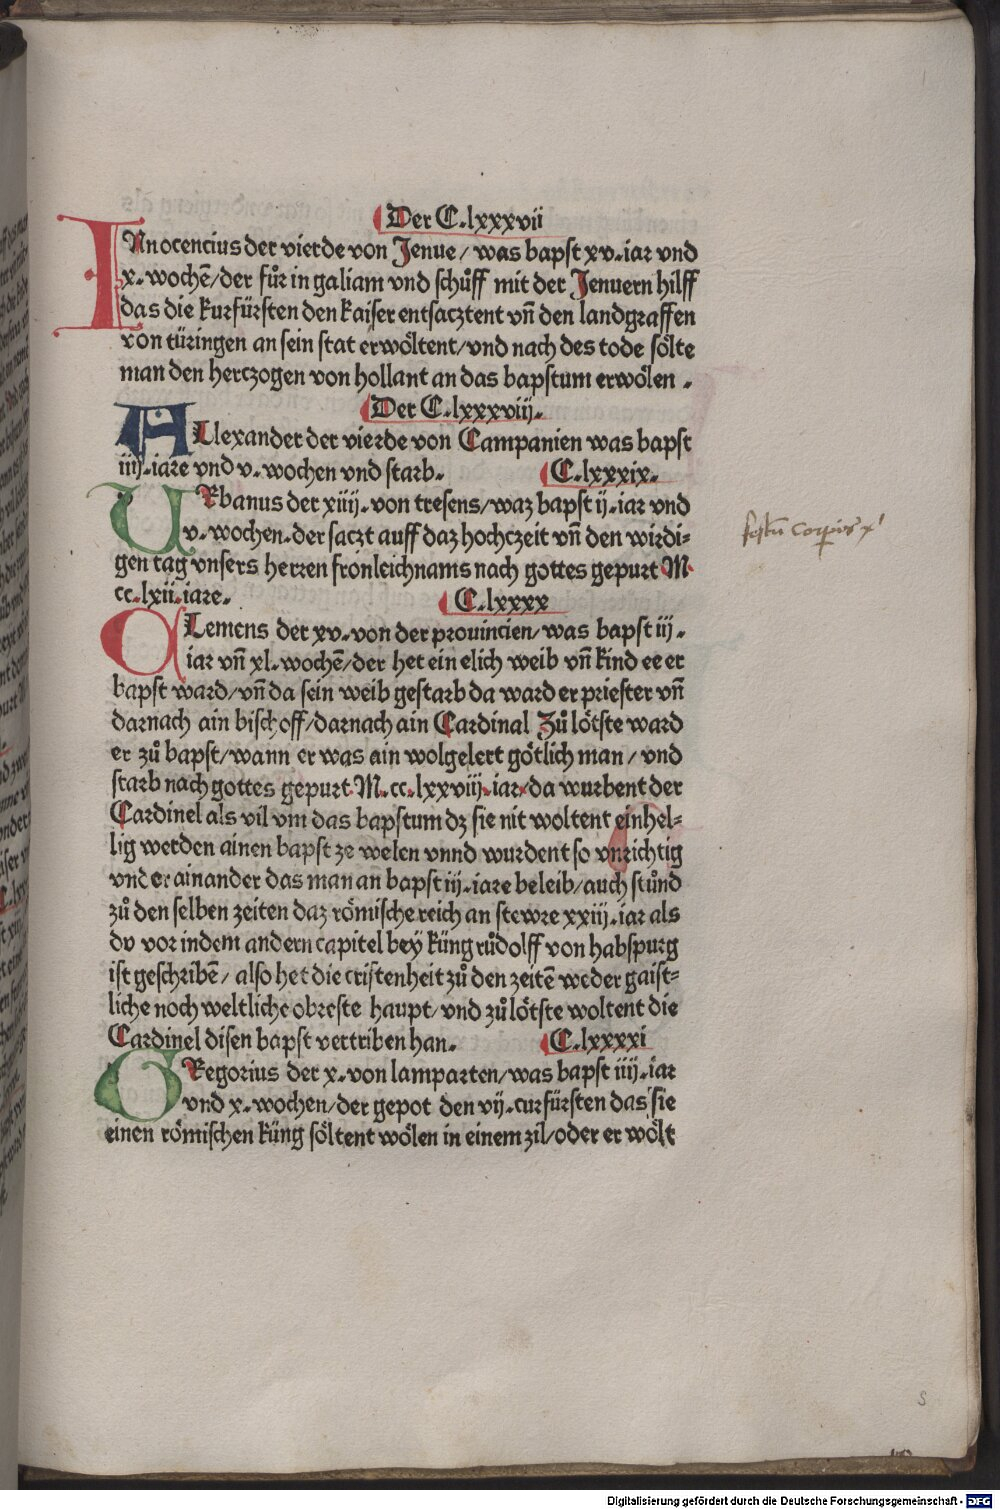 Der C.lxxxvii
INnocencius der vierde von Jenue/ was bapst xv.iar vnd
x.wochē/der fůr in galiam vnd schůff mit der Jenuern hilff
das die kurfürsten den kaiser entsacztent vn̄ den landgraffen
von türingen an sein stat erwöltent/vnd nach des tode sölte
man den herczogen von hollant an das bapstum erwölen .
Der C.lxxxviij.
ALlexander der vierde von Campanien was bapst
iiij.iare vnd v.wochen vnd starb.    C.lxxxix.
URbanus der xiiij.von tresens/waz bapst ij.iar vnd
v.wochen.der saczt auff daz hochczeit vn̄ den wirdi-
gen tag vnsers herren fronleichnams nach gottes gepurt M.
cc.lxii.iare.    C.lxxxx
CLemens der xv.von der prouincien/was bapst iij.
iar vn̄ xl.wochē/der het ein elich weib vn̄ kind ee er
bapst ward/vn̄ da sein weib gestarb da ward er priester vn̄
darnach ain bischoff/darnach ain Cardinal Zů lötste ward
er zů bapst/wann er was ain wolgelert götlich man/ vnd
starb nach gottes gepurt.M.cc.lxxviij.iar/da wurbent der
Cardinel als vil vm das bapstum dz sie nit woltent einhel-
lig werden ainen bapst ze welen vnnd wurdent so vnrichtig
vnder ainander das man an bapst iij.iare beleib/auch stůnd
zů den selben zeiten daz römische reich an stewre xxiij.iar als
du vor in dem andern capitel bey küng růdolff von habspurg
ist geschribē/ also het die cristenheit zů den zeitē weder gaist-
liche noch weltliche obreste haupt/vnd zů lötste woltent die
Cardinel disen bapst vertriben han.    C.lxxxxi
GRegorius der x.von lamparten/was bapst iiij.iar
vnd x.wochen/der gepot den vij.curfürsten das sie
einen römischen küng söltent wölen in einem zil/oder er wölt
festū corporis x'
S
Digitalisierung gefördert durch die Deutsche Forschungsgemeinschaft - DFG